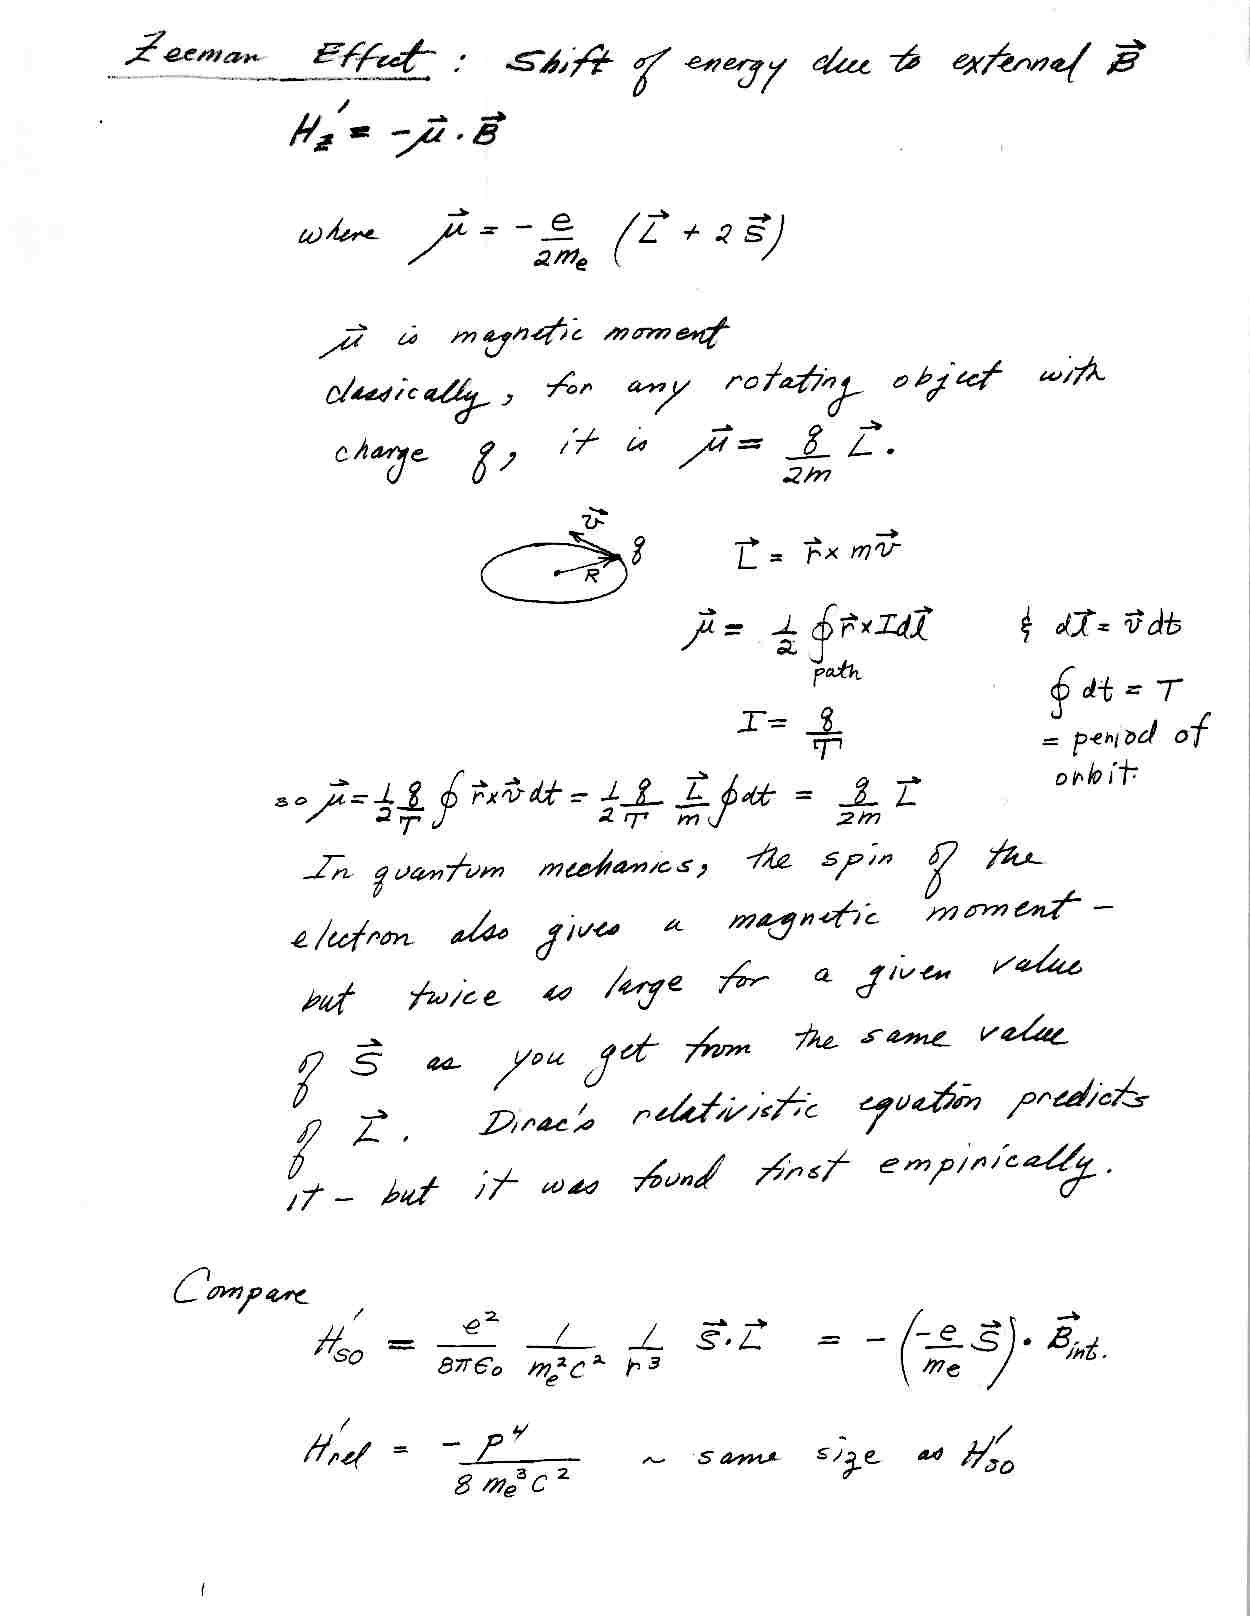 Zeeman Effect : Shift of energy due to external B⃗
H_z' = -μ⃗ · B⃗
where μ⃗ = - e/2mₑ (L⃗ + 2 S⃗)
μ⃗ is magnetic moment
classically, for any rotating object with
charge q, it is μ⃗ = q/2m L⃗.
v⃗ q R
L⃗ = r⃗ x mv⃗
μ⃗ = 1/2 ∮ r⃗ x I dl⃗ & dl⃗ = v⃗ dt
path
∮ dt = T
I = q/T
= period of
orbit
so μ⃗ = 1/2 q/T ∮ r⃗ x v⃗ dt = 1/2 q/T L⃗/m ∮ dt = q/2m L⃗
In quantum mechanics, the spin of the
electron also gives a magnetic moment -
but twice as large for a given value
of S⃗ as you get from the same value
of L⃗. Dirac's relativistic equation predicts
it - but it was found first empirically.
Compare
H'_SO = e²/8πϵ₀ 1/mₑ²c² 1/r³ S⃗·L⃗ = - (-e/mₑ S⃗) · B⃗_int.
H'_rel = -p⁴/8 mₑ³c² ~ same size as H'_SO